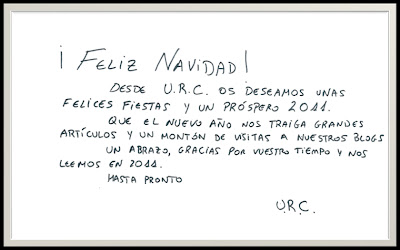 ¡ FELIZ NAVIDAD!
DESDE U.R.C. OS DESEAMOS UNAS
FELICES FIESTAS Y UN PRÓSPERO 2011.
QUE EL NUEVO AÑO NOS TRAIGA GRANDES
ARTÍCULOS Y UN MONTÓN DE VISITAS A NUESTROS BLOGS
UN ABRAZO, GRACIAS POR VUESTRO TIEMPO Y NOS
LEEMOS EN 2011.
HASTA PRONTO
U.R.C.